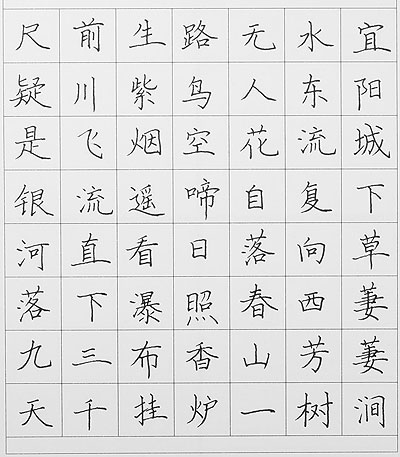 宜阳城下草萋萋涧
水东流复向西芳树
无人花自落春山一
路鸟空啼日照香炉
生紫烟遥看瀑布挂
前川飞流直下三千
尺疑是银河落九天